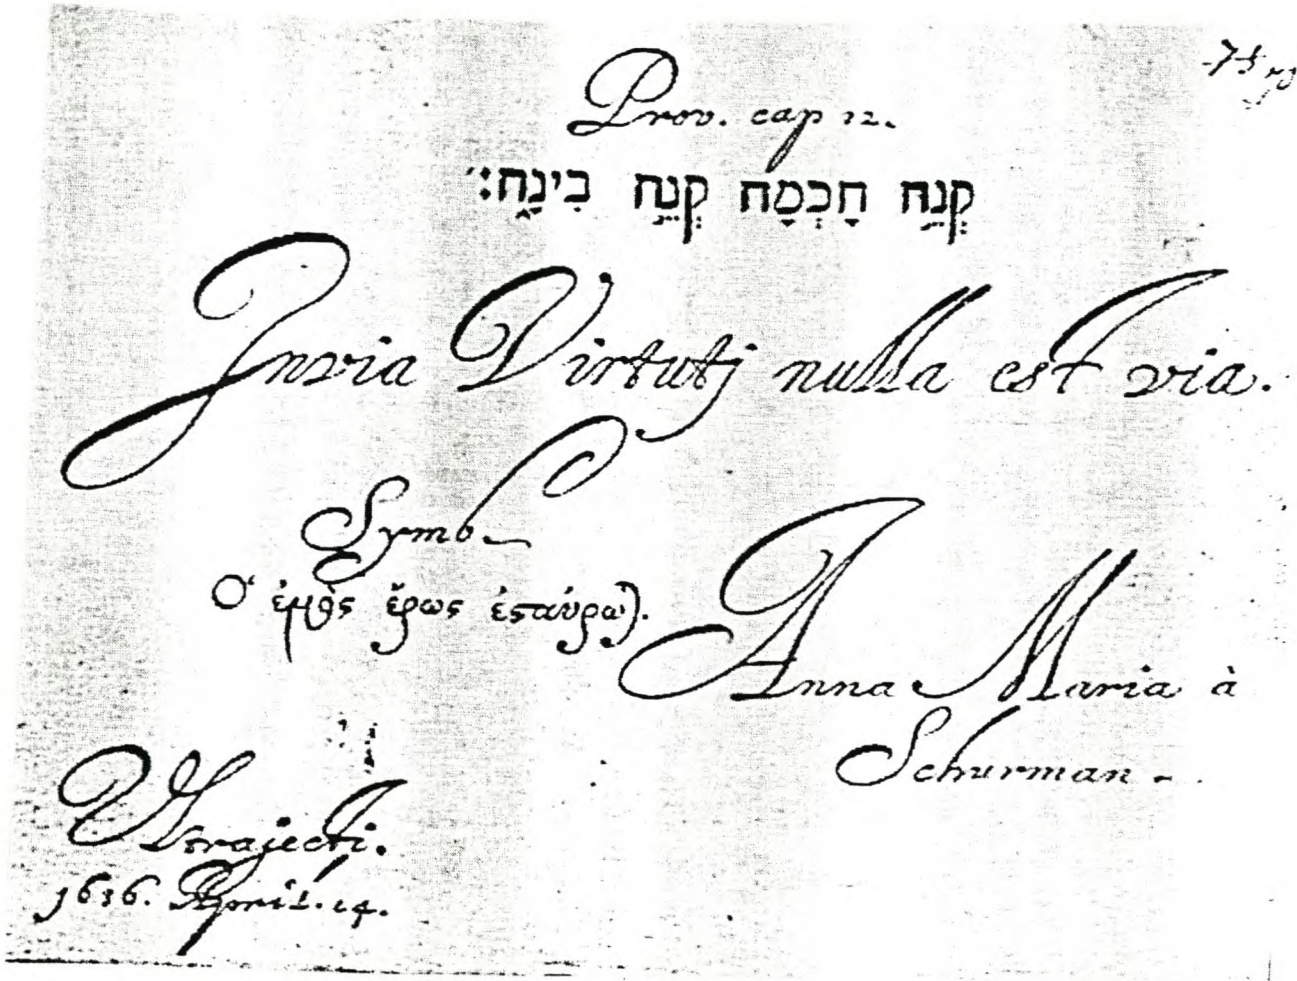 Prov. cap 12.
קְנֵה חָכְמָה קְנֵה בִינָה׃
Invia Virtutj nulla est via.
Symb
Ὁ ἐμὸς ἔρως ἐϛαύρω).
Anna Maria à
Schurman
Vltrajecti.
1636. April. 14.